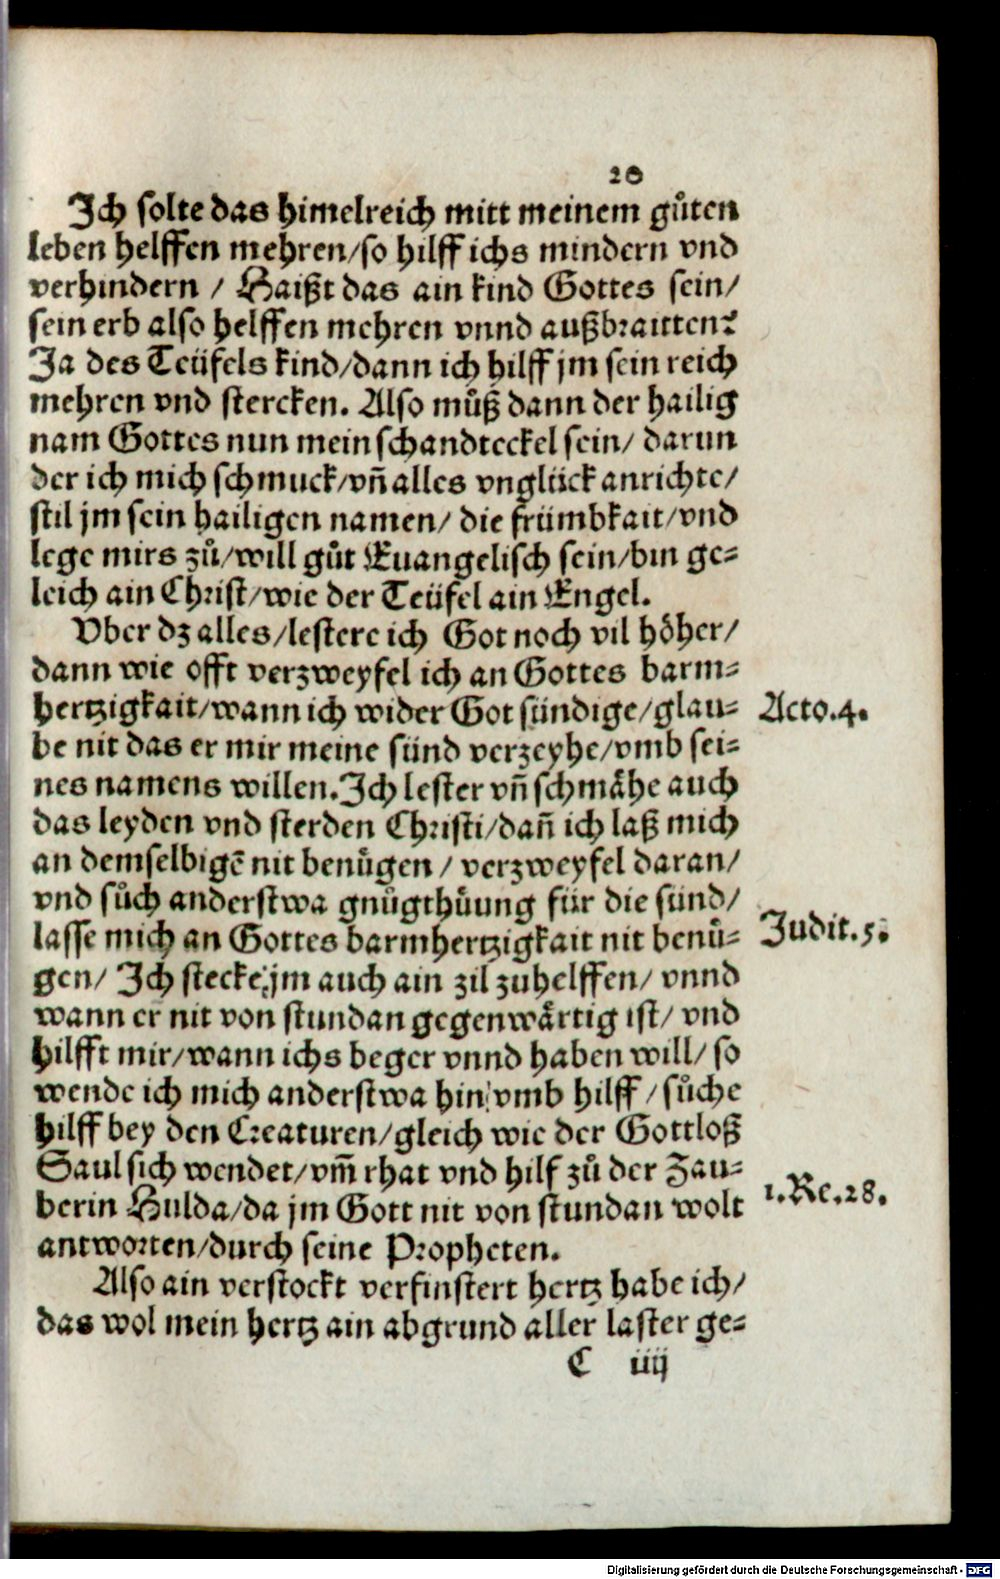 20
Ich solte das himelreich mitt meinem gůten
leben helffen mehren/so hilff ichs mindern vnd
verhindern / Haißt das ain kind Gottes sein/
sein erb also helffen mehren vnnd außbraitten?
Ja des Teüfels kind/dann ich hilff jm sein reich
mehren vnd stercken. Also můß dann der hailig
nam Gottes nun mein schandteckel sein/ darun
der ich mich schmuck/vñ alles vnglück anrichte/
stil jm sein hailigen namen/ die frümbkait/vnd
lege mirs zů/will gůt Euangelisch sein/bin ge⸗
leich ain Christ/wie der Teüfel ain Engel.
Vber dz alles/lestere ich Got noch vil hoͤher/
dann wie offt verzweyfel ich an Gottes barm⸗
hertzigkait/wann ich wider Got sündige/glau⸗
Acto.4.
be nit das er mir meine sünd verzeyhe/vmb sei⸗
nes namens willen. Ich lester vñ schmaͤhe auch
das leyden vnd sterden Christi/dañ ich laß mich
an demselbigẽ nit benuͤgen / verzweyfel daran/
vnd sůch anderstwa gnůgthůung für die sünd/
lasse mich an Gottes barmhertzigkait nit benuͤ⸗
Judit.5.
gen/ Ich stecke jm auch ain zil zuhelffen/ vnnd
wann er nit von stundan gegenwaͤrtig ist/ vnd
hilfft mir/wann ichs beger vnnd haben will/ so
wende ich mich anderstwa hin vmb hilff / sůche
hilff bey den Creaturen/gleich wie der Gottloß
Saul sich wendet/vm̃ rhat vnd hilf zů der Zau⸗
berin Hulda/da jm Gott nit von stundan wolt
1.Re.28.
antworten/durch seine Propheten.
Also ain verstockt verfinstert hertz habe ich/
das wol mein hertz ain abgrund aller laster ge⸗
C iiij
Digitalisierung gefördert durch die Deutsche Forschungsgemeinschaft - DFG